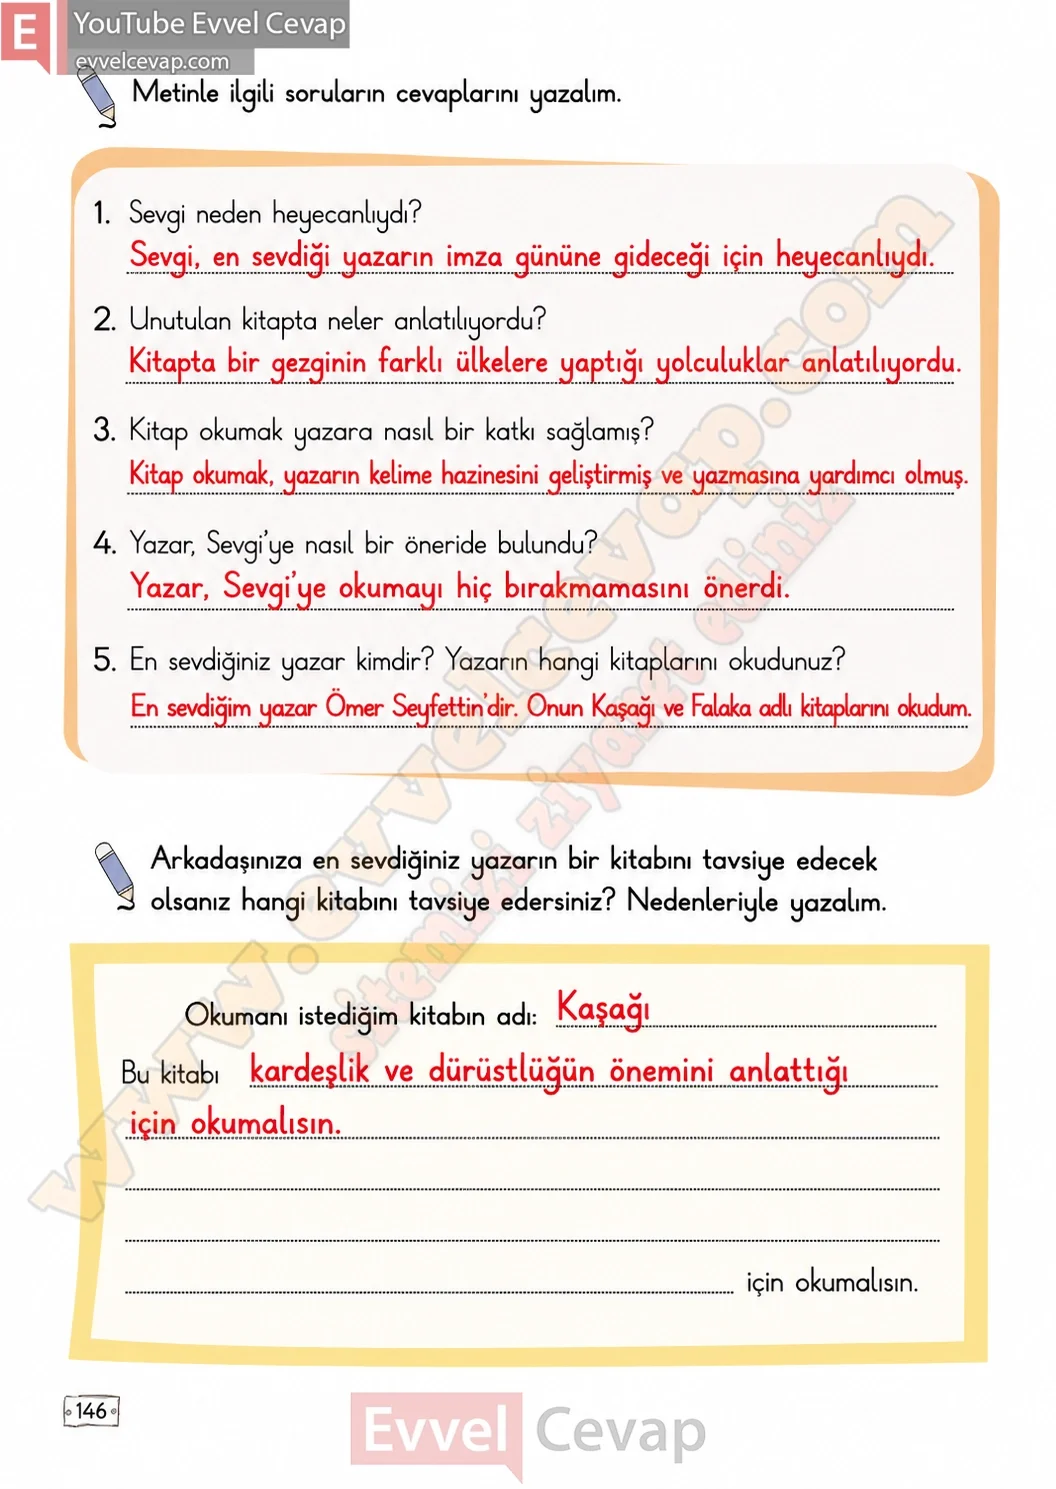 E YouTube Evvel Cevap
evvelcevap.com
Metinle ilgili soruların cevaplarını yazalım.
1. Sevgi neden heyecanlıydı?
Sevgi, en sevdiği yazarın imza gününe gideceği için heyecanlıydı.
2. Unutulan kitapta neler anlatılıyordu?
Kitapta bir gezginin farklı ülkelere yaptığı yolculuklar anlatılıyordu.
3. Kitap okumak yazara nasıl bir katkı sağlamış?
Kitap okumak, yazarın kelime hazinesini geliştirmiş ve yazmasına yardımcı olmuş.
4. Yazar, Sevgi'ye nasıl bir öneride bulundu?
Yazar, Sevgi'ye okumayı hiç bırakmamasını önerdi.
5. En sevdiğiniz yazar kimdir? Yazarın hangi kitaplarını okudunuz?
En sevdiğim yazar Ömer Seyfettin'dir. Onun Kaşağı ve Falaka adlı kitaplarını okudum.
www.evvelcevap.com
sitemizi ziyaret ediniz
Arkadaşınıza en sevdiğiniz yazarın bir kitabını tavsiye edecek
olsanız hangi kitabını tavsiye edersiniz? Nedenleriyle yazalım.
Okumanı istediğim kitabın adı: Kaşağı
Bu kitabı kardeşlik ve dürüstlüğün önemini anlattığı
için okumalısın.
için okumalısın.
146
Evvel Cevap